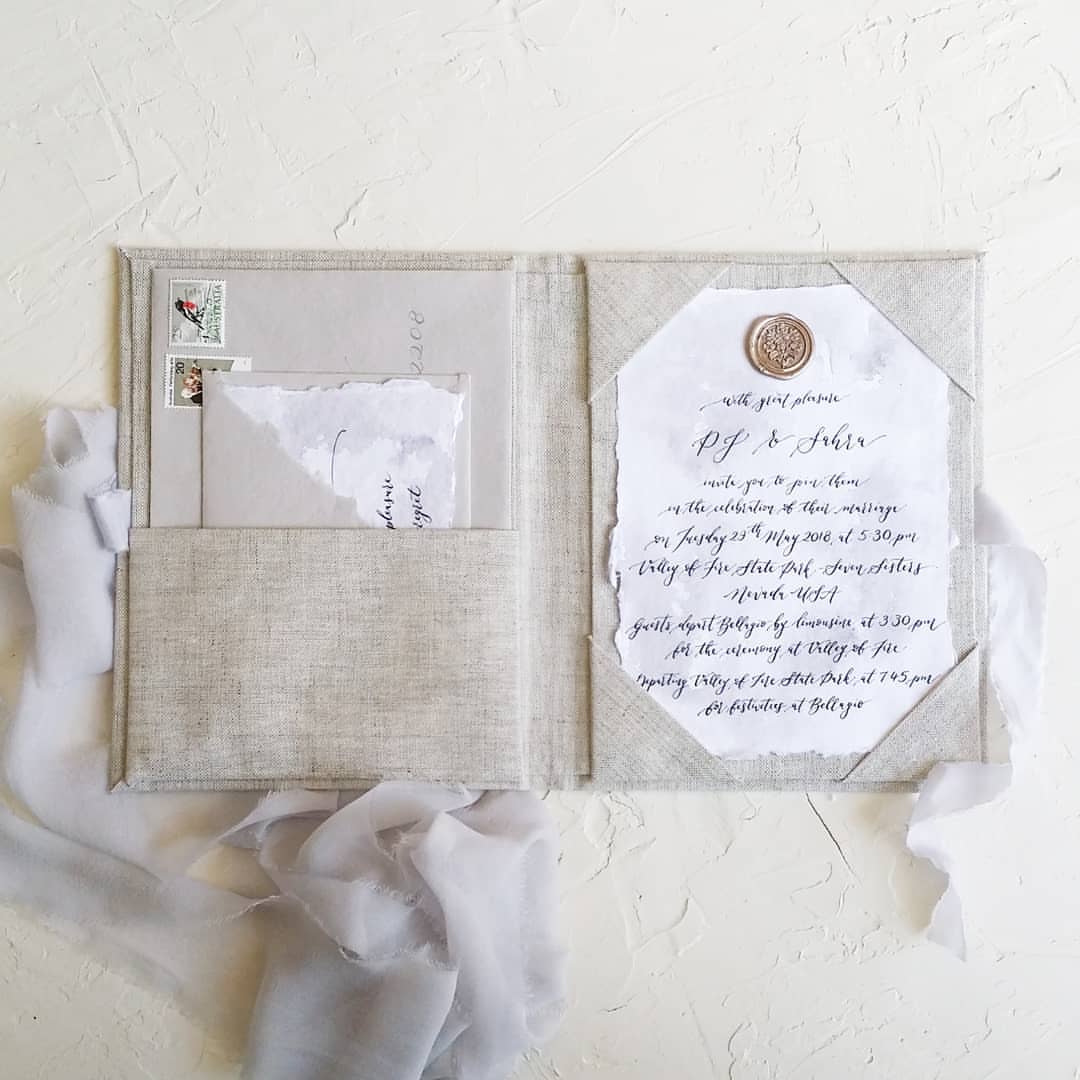 AUSTRALIA
2208
20
pleasure
regret
with great pleasure
PJ & Sahra
invite you to join them
in the celebration of their marriage
on Tuesday 29th May 2018, at 5:30 pm
Valley of Fire State Park - Seven Sisters
Nevada USA
Guests depart Bellagio, by limousine at 3:30 pm
for the ceremony at Valley of Fire
Departing Valley of Fire State Park, at 7:45 pm
for festivities at Bellagio